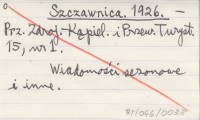 Szczawnica. 1926. —
Prz. Zdroj.-Kąpiel. i Przew. Turyst.
15, nr 1.
Wiadomości sezonowe
i inne.